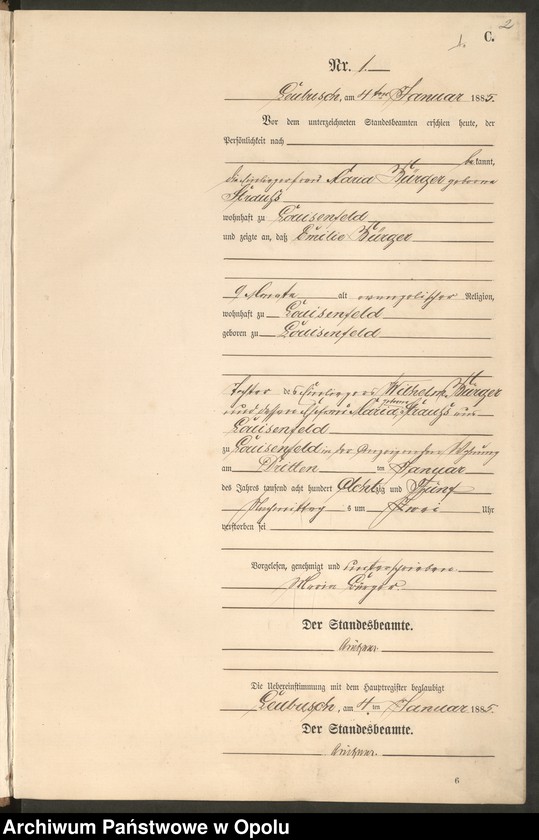 2
1. C.
Nr. 1.
Leubusch, am 4ten Januar 1885.
Vor dem unterzeichneten Standesbeamten erschien heute, der
Persönlichkeit nach
bekannt,
die Einliegerfrau Maria Bürger geborene
Strauß
wohnhaft zu Louisenfeld
und zeigte an, daß Emilie Bürger
9 Monate alt evangelischer Religion,
wohnhaft zu Louisenfeld
geboren zu Louisenfeld
Tochter des Einliegers Wilhelm Bürger
und dessen Ehefrau Maria geborene Strauß aus
Louisenfeld
zu Louisenfeld in der Wohnung
am Dritten ten Januar
des Jahres tausend acht hundert Achtzig und Fünf
Nachmittags um Zwei Uhr
verstorben sei
Vorgelesen, genehmigt und unterschrieben
Maria Bürger.
Der Standesbeamte.
Die Uebereinstimmung mit dem Hauptregister beglaubigt
Leubusch, am 4ten Januar 1885.
Der Standesbeamte.
6
Archiwum Państwowe w Opolu